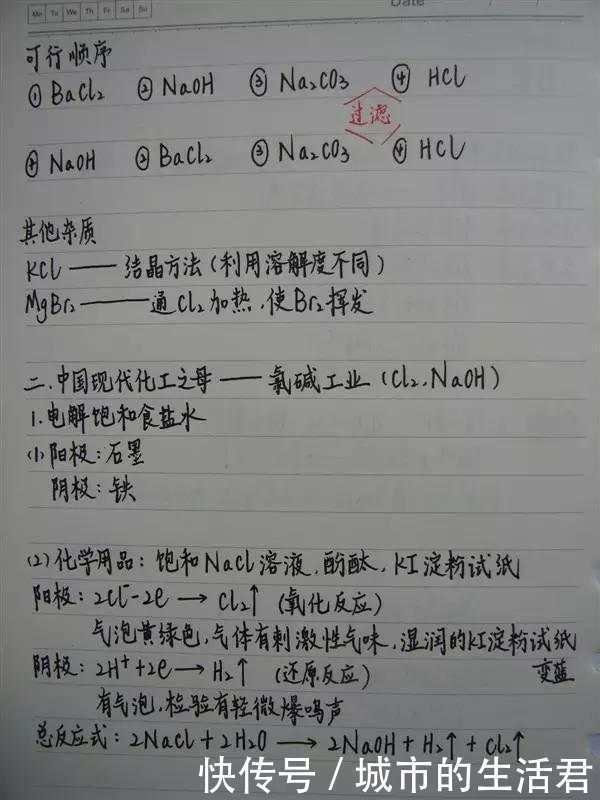 Mo Tu We Th Fr Sa Su
Date
可行顺序
① BaCl2 ② NaOH ③ Na2CO3 ④ HCl
过滤
① NaOH ② BaCl2 ③ Na2CO3 ④ HCl
其他杂质
KCl —— 结晶方法(利用溶解度不同)
MgBr2 —— 通Cl2加热,使Br2挥发
二.中国现代化工之母 —— 氯碱工业(Cl2,NaOH)
1.电解饱和食盐水
(1)阳极:石墨
阴极:铁
(2)化学用品:饱和NaCl溶液,酚酞,KI淀粉试纸
阳极:2Cl⁻-2e → Cl2↑ (氧化反应)
气泡黄绿色,气体有刺激性气味,湿润的KI淀粉试纸
变蓝
阴极:2H⁺+2e → H2↑ (还原反应)
有气泡,检验有轻微爆鸣声
总反应式:2NaCl+2H2O → 2NaOH+H2↑+Cl2↑
快传号/城市的生活君